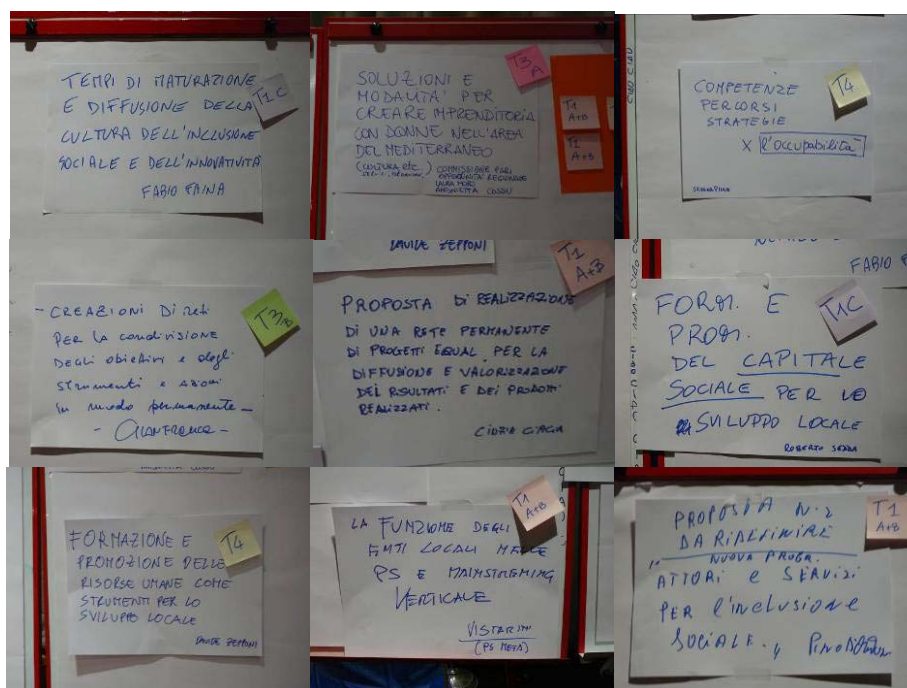 TEMPI DI MATURAZIONE
E DIFFUSIONE DELLA
CULTURA DELL'INCLUSIONE
SOCIALE E DELL'INNOVATIVITÀ
FABIO FAINA
T1C
SOLUZIONI E
MODALITA' PER
CREARE IMPRENDITORIA
CON DONNE NELL'AREA
DEL MEDITERRANEO
(CULTURA etc.
COMMISSIONE PARI
OPPORTUNITÀ REGIONALE
LAURA MORO
T3
A
T1
A+B
T2
A+B
COMPETENZE
PERCORSI
STRATEGIE
X l'occupabilità
T4
- CREAZIONI Di reti
PER la condivisione
DEGLI obiettivi e degli
strumenti e azioni
in modo permanente -
- GIANFRANCO -
T3
DAVIDE ZEPPONI
PROPOSTA Di REALIZZAZIONE
DI UNA RETE PERMANENTE
DI PROGETTI EQUAL PER LA
DIFFUSIONE E VALORIZZAZIONE
DEI RISULTATI E DEI PRODOTTI
REALIZZATI.
CINZIA
T1
A+B
FABIO
FORM. E
PROM.
DEL CAPITALE
SOCIALE PER LO
SVILUPPO LOCALE
ROBERTO
T1C
FORMAZIONE E
PROMOZIONE DELLE
RISORSE UMANE COME
STRUMENTI PER LO
SVILUPPO LOCALE
DAVIDE ZEPPONI
T4
LA FUNZIONE DEGLI
ENTI LOCALI NELLE
PS E MAINSTREMING
VERTICALE
VISTARINI
(PS META)
T1
A+B
PROPOSTA N. 2
DA RIDEFINIRE
NUOVA PROGR.
" ATTORI e SERVIZI
PER l'inclusione
SOCIALE. "
T1
A+B